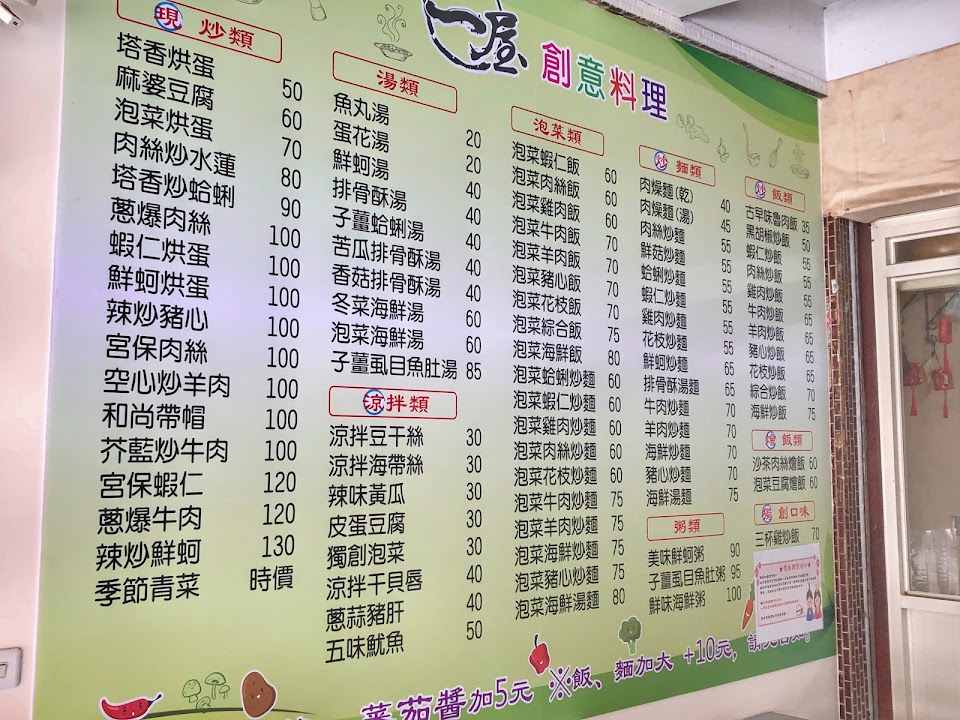 一屋
創意料理
現炒類
塔香烘蛋 50
麻婆豆腐 60
泡菜烘蛋 70
肉絲炒水蓮 80
塔香炒蛤蜊 90
蔥爆肉絲 100
蝦仁烘蛋 100
鮮蚵烘蛋 100
辣炒豬心 100
宮保肉絲 100
空心炒羊肉 100
和尚帶帽 100
芥藍炒牛肉 100
宮保蝦仁 120
蔥爆牛肉 120
辣炒鮮蚵 130
季節青菜 時價
湯類
魚丸湯 20
蛋花湯 20
鮮蚵湯 40
排骨酥湯 40
子薑蛤蜊湯 40
苦瓜排骨酥湯 40
香菇排骨酥湯 40
冬菜海鮮湯 60
泡菜海鮮湯 60
子薑虱目魚肚湯 85
涼拌類
涼拌豆干絲 30
涼拌海帶絲 30
辣味黃瓜 30
皮蛋豆腐 30
獨創泡菜 30
涼拌干貝唇 40
蔥蒜豬肝 40
五味魷魚 50
泡菜類
泡菜蝦仁飯 60
泡菜肉絲飯 60
泡菜雞肉飯 60
泡菜牛肉飯 70
泡菜羊肉飯 70
泡菜豬心飯 70
泡菜花枝飯 70
泡菜綜合飯 75
泡菜海鮮飯 80
泡菜蛤蜊炒麵 60
泡菜蝦仁炒麵 60
泡菜雞肉炒麵 60
泡菜肉絲炒麵 60
泡菜花枝炒麵 60
泡菜牛肉炒麵 75
泡菜羊肉炒麵 75
泡菜海鮮炒麵 75
泡菜豬心炒麵 75
泡菜海鮮湯麵 80
炒麵類
肉燥麵(乾) 40
肉燥麵(湯) 45
肉絲炒麵 55
鮮菇炒麵 55
蛤蜊炒麵 55
蝦仁炒麵 55
雞肉炒麵 55
花枝炒麵 55
鮮蚵炒麵 65
排骨酥湯麵 65
牛肉炒麵 70
羊肉炒麵 70
海鮮炒麵 70
豬心炒麵 70
海鮮湯麵 75
粥類
美味鮮蚵粥 90
子薑虱目魚肚粥 95
鮮味海鮮粥 100
炒飯類
古早味魯肉飯 35
黑胡椒炒飯 50
蝦仁炒飯 55
肉絲炒飯 55
雞肉炒飯 55
牛肉炒飯 65
羊肉炒飯 65
豬心炒飯 65
花枝炒飯 65
綜合炒飯 65
海鮮炒飯 75
燴飯類
沙茶肉絲燴飯 60
泡菜豆腐燴飯 60
獨創口味
三杯雞炒飯 70
蕃茄醬加5元 ※飯、麵加大 +10元,